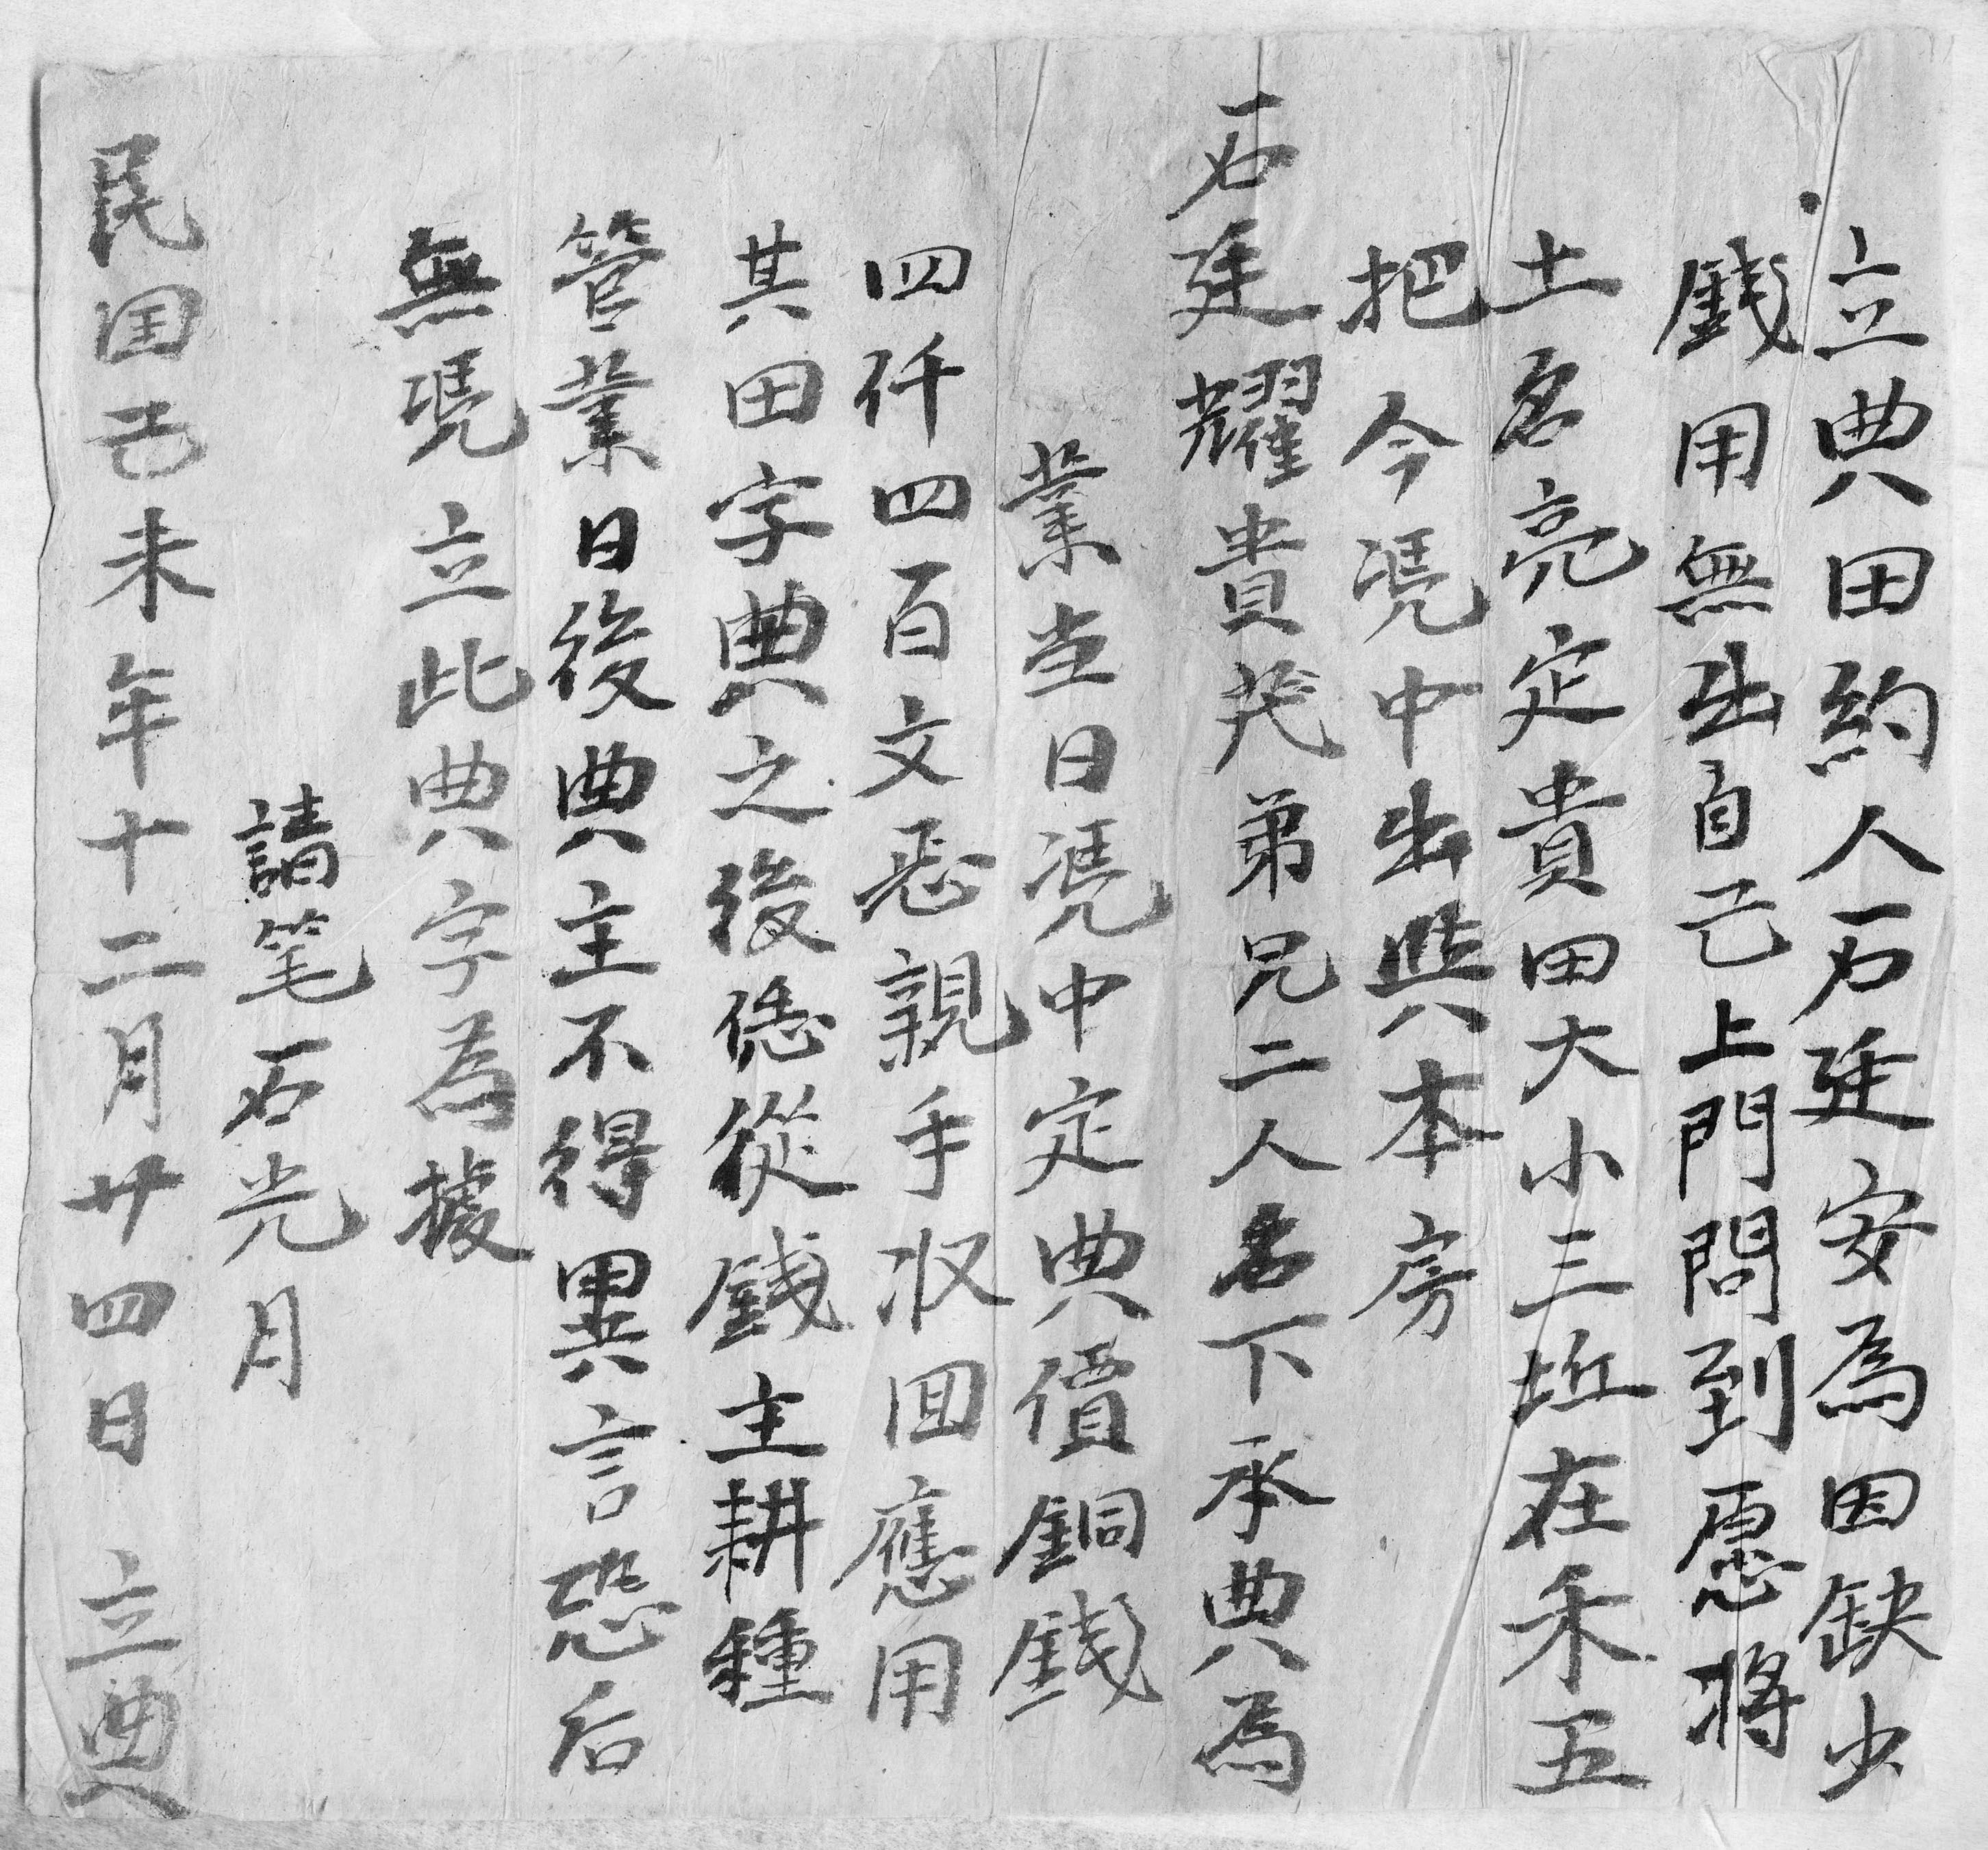 立典田約人石廷安為因缺少
錢用無出自己上門問到愿將
土名亮定貴田大小三坵在禾五
把今凴中出與本房
石廷耀貴茂弟兄二人名下承典為
業当日凴中定典價銅錢
四仟四百文恶親手收回應用
其田字典之後恁從錢主耕種
管業日後典主不得異言恐后
無凴立此典字為據
請笔石光月
民国己未年十二月廿四日 立典